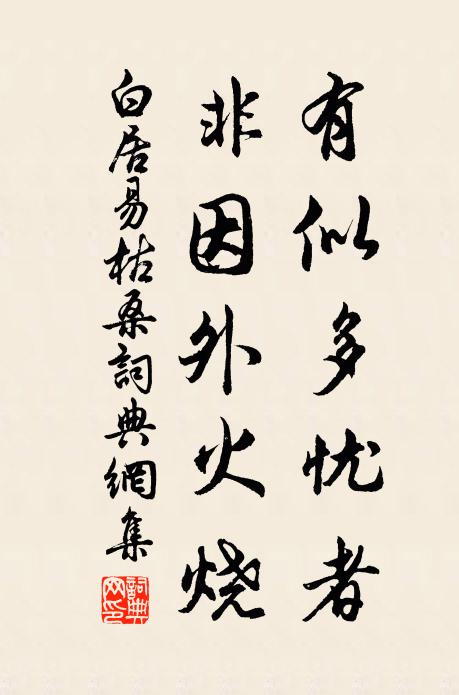 有似多忧者
非因外火烧
白居易枯桑詞典網集
詞典網印